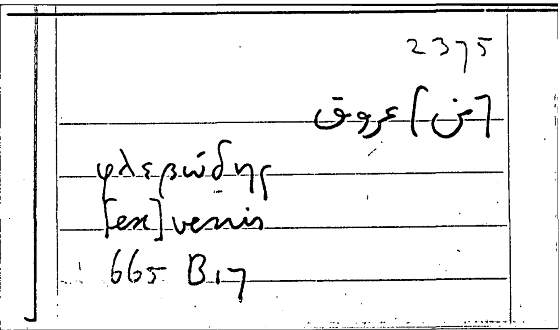 2375
[من] عروق
φλεβώδης
[ex] venis
665 B 17